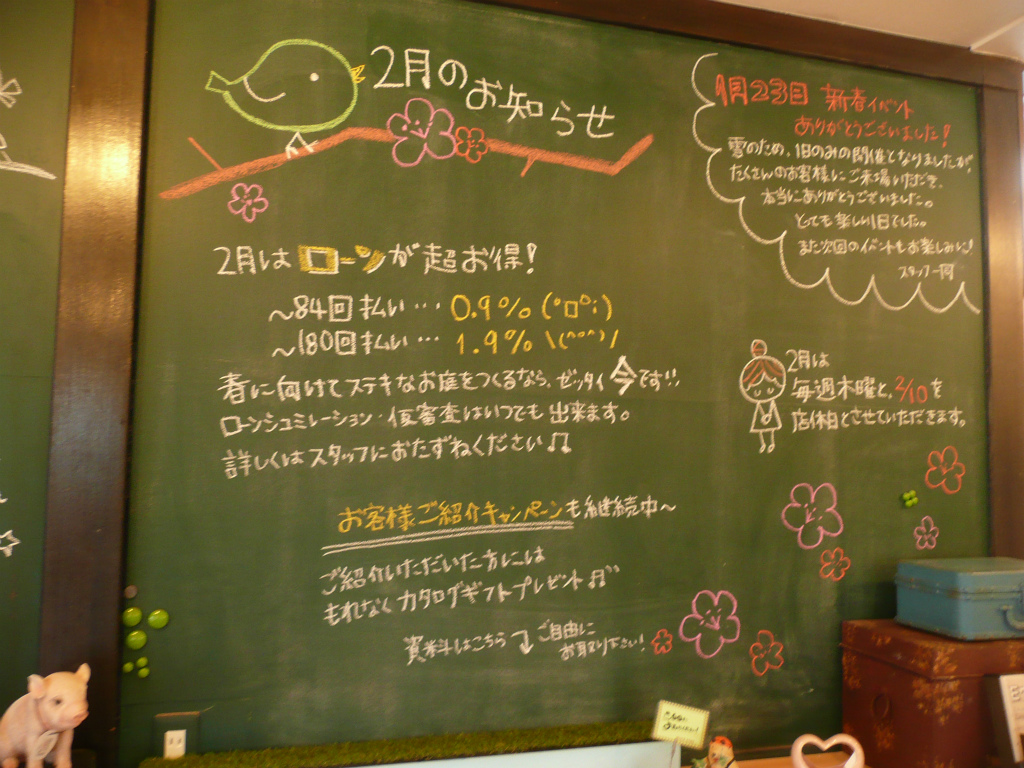 2月のお知らせ
2月は ローンが超お得!
～84回払い… 0.9% (°□°;)
～180回払い… 1.9% \(^^)/
春に向けてステキなお庭をつくるなら、ゼッタイ 今です!!
ローンシュミレーション・仮審査はいつでも出来ます。
詳しくはスタッフにおたずねください♫
お客様ご紹介キャンペーンも継続中～
ご紹介いただいた方には
もれなくカタログギフトプレゼント♫
資料はこちら ↴ ご自由に
お取り下さい!
1月23日 新春イベント
ありがとうございました!
雪のため、1日のみの開催となりましたが、
たくさんのお客様にご来場いただき、
本当にありがとうございました。
とても楽しい1日でした。
また次回のイベントもお楽しみに!
スタッフ一同
2月は
毎週木曜と、2/10を
店休日とさせていただきます。